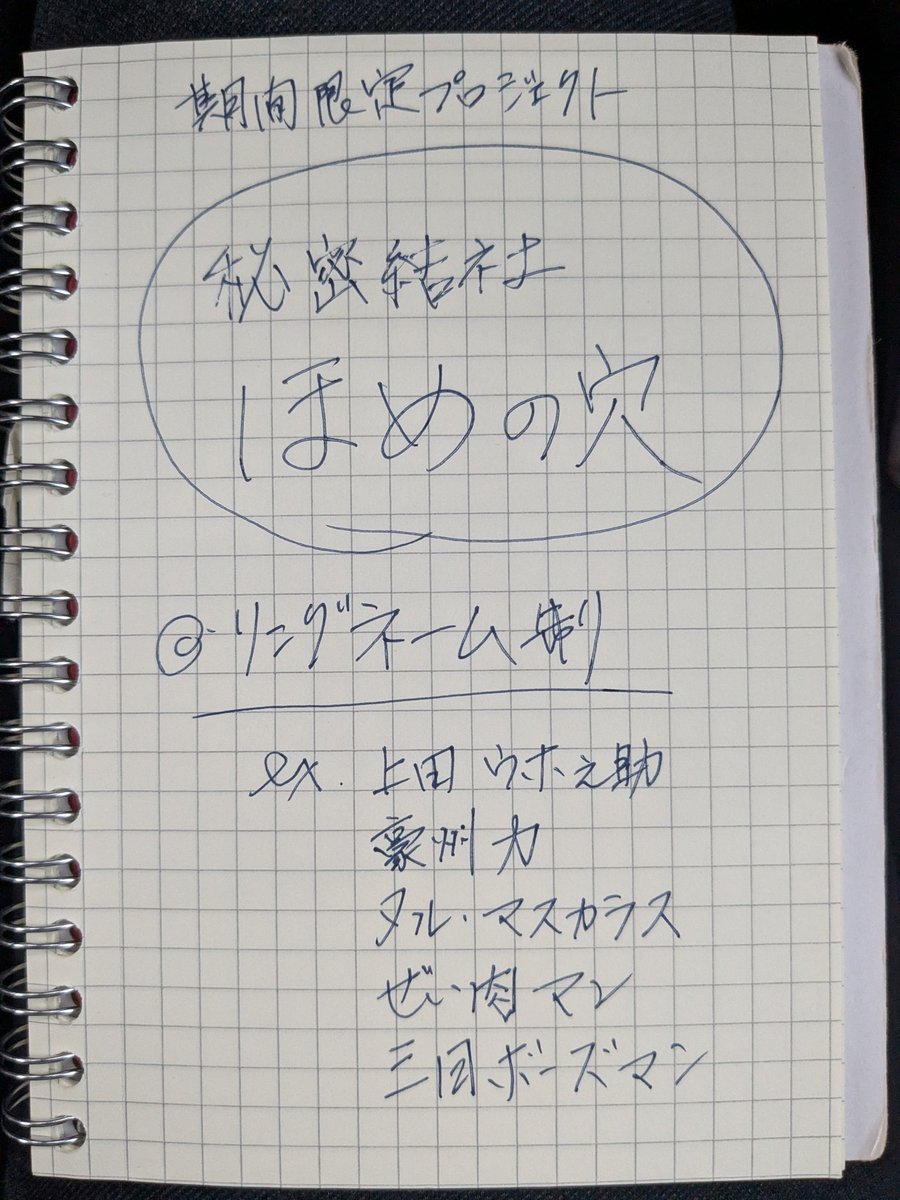 期間限定プロジェクト
秘密結社
ほめの穴
◎リングネーム制
ex. 上田ウホ之助
豪州力
タル・マスカラス
ぜい肉マン
三回ボーズマン